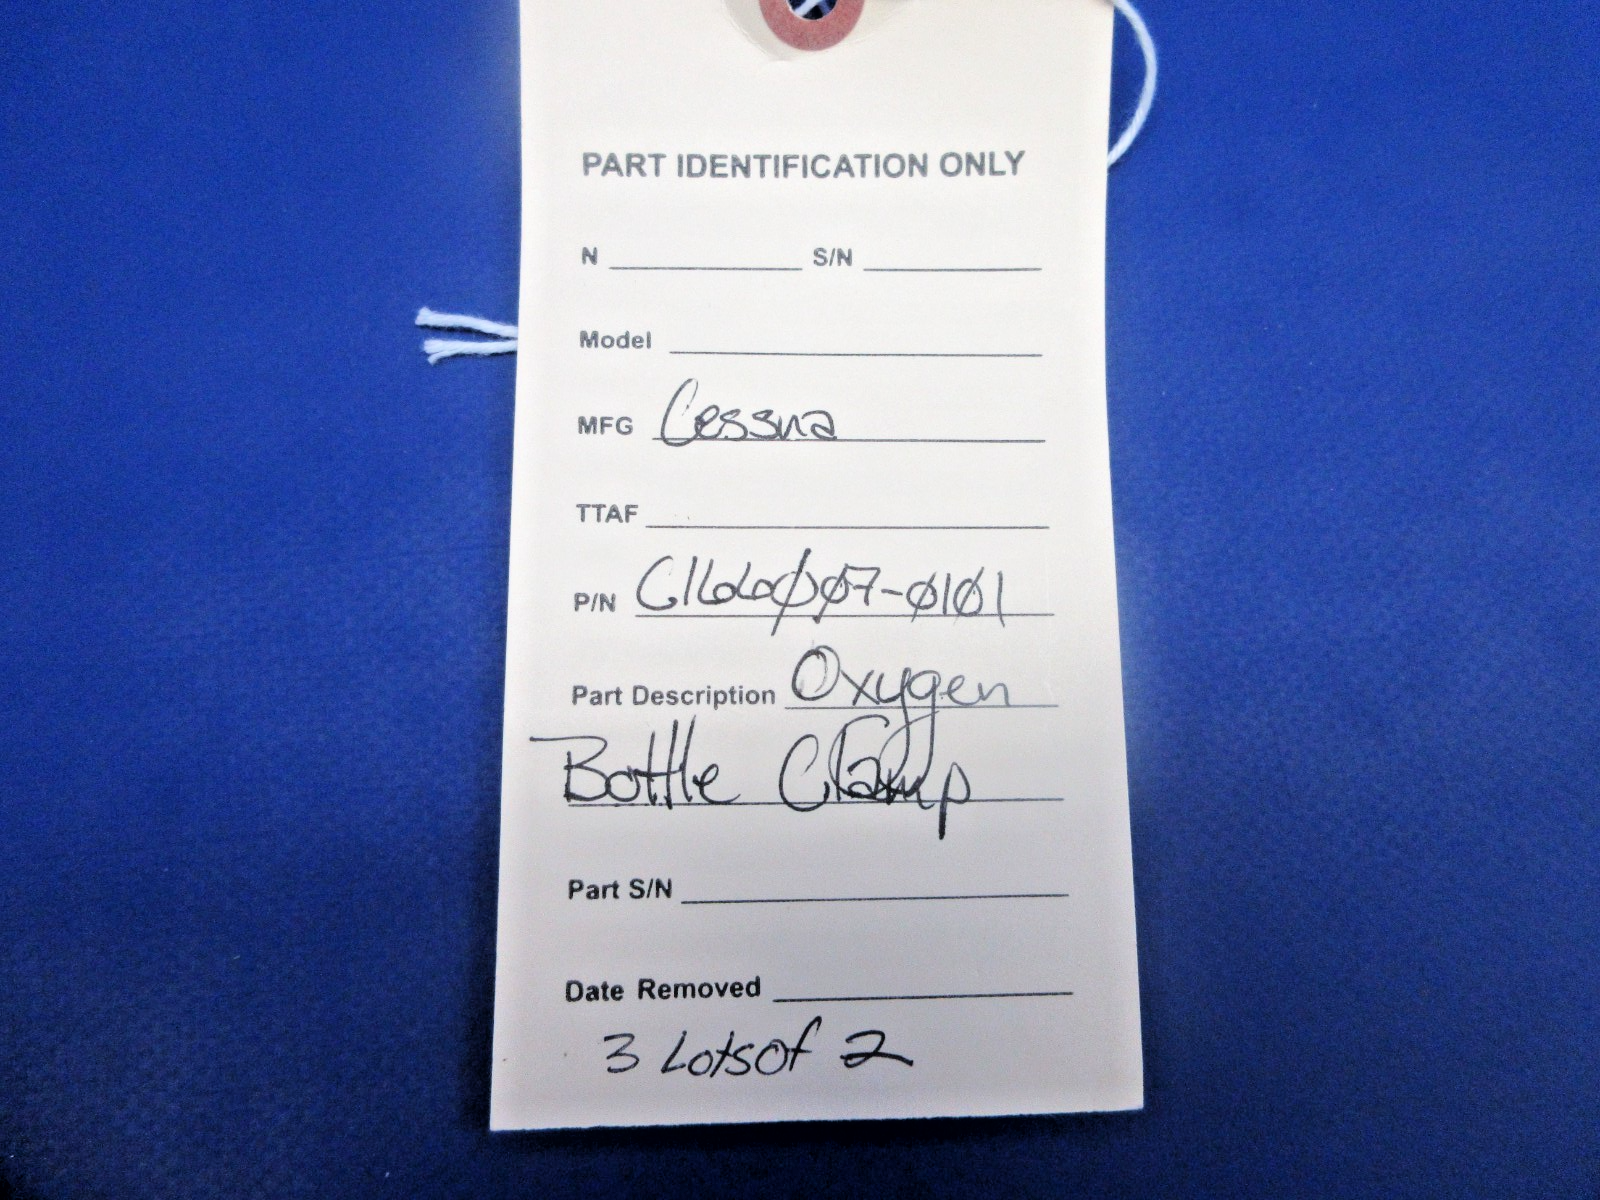 PART IDENTIFICATION ONLY
N S/N
Model
MFG Cessna
TTAF
P/N C166007-0101
Part Description Oxygen
Bottle Clamp
Part S/N
Date Removed
3 Lots of 2